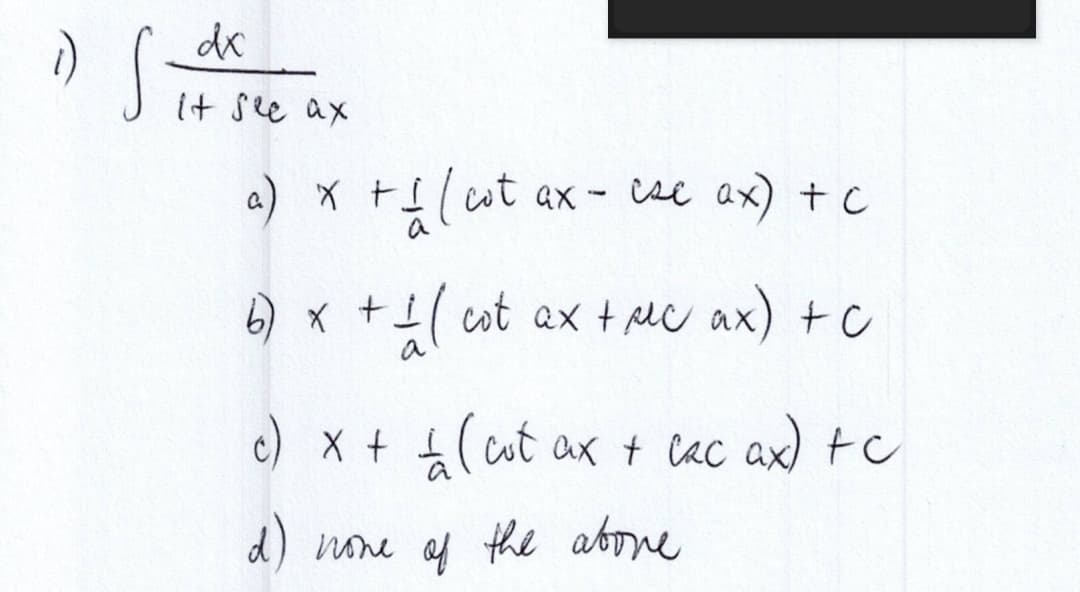 1) ∫ dx / (1 + sec ax)
a) x + 1/a (cot ax - csc ax) + c
b) x + 1/a (cot ax + sec ax) + c
c) x + 1/a (cot ax + csc ax) + c
d) none of the above